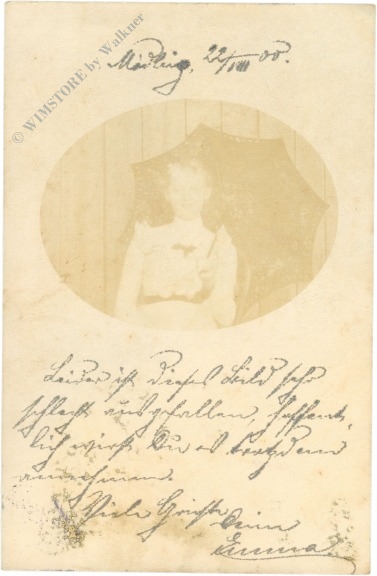 © WIMSTORE by Walkner
Mödling, 22/VIII 00.
Leider ist dieses Bild sehr
schlecht ausgefallen, hoffent-
lich wirst Du es trotzdem
annehmen.
Viele Grüße
Deine
Emma